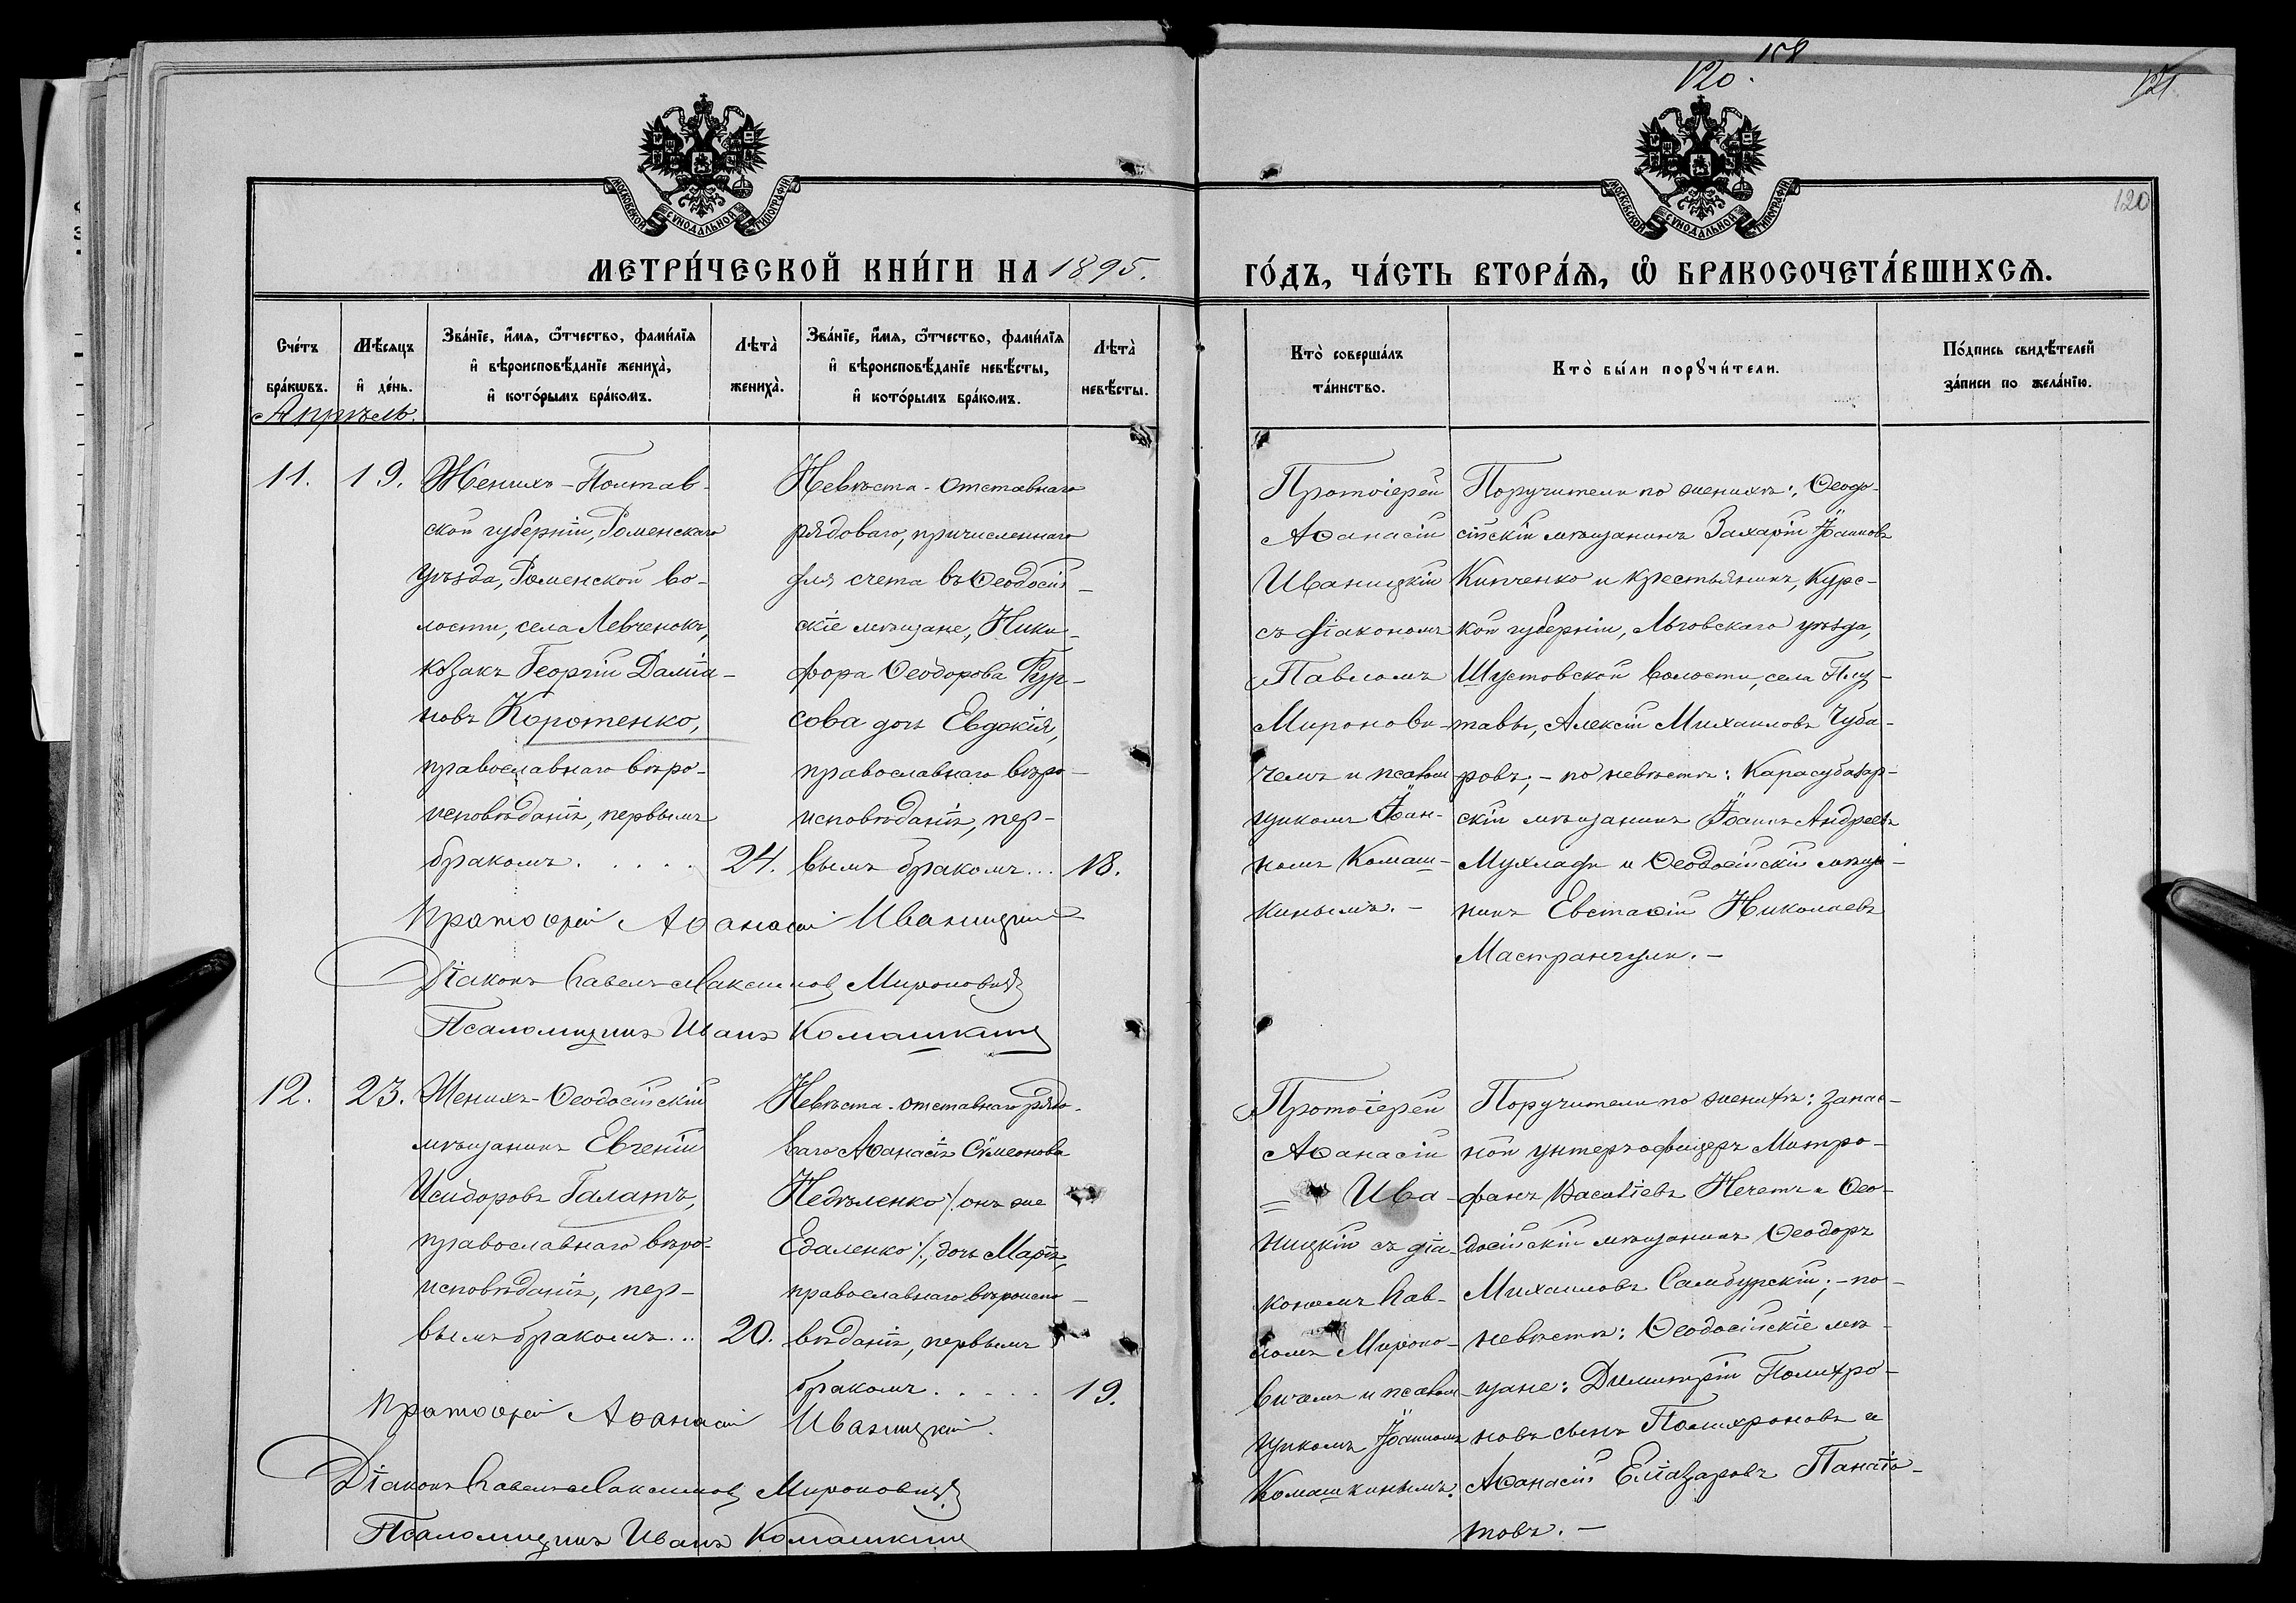 158
120.
121
120
МОСКОВСКОЙ СУНОДАЛЬНОЙ ТИПОГРАФІИ
МОСКОВСКОЙ СУНОДАЛЬНОЙ ТИПОГРАФІИ
МЕТРИ́ЧЕСКОЙ КНИ́ГИ НА 1895.
ГО́ДЪ, ЧА́СТЬ ВТОРА́Ѧ, Ѡ҆ БРАКОСОЧЕТА́ВШИХСѦ.
Сче́тъ
бра́кѡвъ.
Мѣ́сяцъ
и҆ де́нь.
Зва́нїе, и҆́мѧ, ѻ҆́тчество, фами́лїѧ
и҆ вѣроисповѣ́данїе жениха̀,
и҆ кото́рымъ бра́комъ.
Лѣта̀
жениха̀.
Зва́нїе, и҆́мѧ, ѻ҆́тчество, фами́лїѧ
и҆ вѣроисповѣ́данїе невѣ́сты,
и҆ кото́рымъ бра́комъ.
Лѣта̀
невѣ́сты.
Кто̀ соверша́лъ
та́инство.
Кто̀ бы́ли порꙋчи́тели.
По́дпись свидѣ́телей
за́писи по жела́нїю.
Апрѣль.
11.
19.
Женихъ – Полтав-
ской губерніи, Роменскаго
уѣзда, Роменской во-
лости, села Левченокъ,
козакъ Георгій Даміа-
новъ Коротенко,
православнаго вѣро-
исповѣданія, первымъ
бракомъ. . . . .
24.
Невѣста – отставнаго
рядоваго, причисленнаго
для счета въ Ѳеодосій-
скіе мѣщане, Ники-
фора Ѳеодорова Фур-
сова дочь Евдокія,
православнаго вѣро-
исповѣданія, пер-
вымъ бракомъ...
18.
Протоіерей
Аѳанасій
Иваницкій
съ діакономъ
Павломъ
Миронови-
чемъ и псалом-
щикомъ Іоан-
номъ Комаш-
кинымъ. –
Поручители по женихѣ: Ѳеодо-
сійскій мѣщанинъ Захарій Іоанновъ
Кипченко и крестьянинъ, Курс-
кой губерніи, Льговскаго уѣзда,
Шустовской волости, села Плу-
тавы, Алексій Михаиловъ Чуба-
ровъ; – по невѣстѣ: Карасубазар-
скій мѣщанинъ Іоаннъ Андреевъ
Мухлади и Ѳеодосійскій мѣща-
нинъ Евстаѳій Николаевъ
Мастранчули. –
Протоіерей Аѳанасій Иваницкій
Діаконъ Павелъ Максимовъ Мироновичъ
Псаломщикъ Иванъ Комашкинъ
12.
23.
Женихъ – Ѳеодосійскій
мѣщанинъ Евгеній
Исидоровъ Галатъ,
православнаго вѣро-
исповѣданія, пер-
вымъ бракомъ...
20.
Невѣста – отставнаго рядо-
ваго Аѳанасія Сѵмеонова
Недѣленко /: онъ же
Едаленко :/, дочь Марія,
православнаго вѣроиспо-
вѣданія, первымъ
бракомъ. . . . .
19.
Протоіерей
Аѳанасій
= Ива-
ницкій съ діа-
кономъ Пав-
ломъ Мироно-
вичемъ и псалом-
щикомъ Іоанномъ
Комашкинымъ.
Поручители по женихѣ: запас-
ной унтеръ-офицеръ Митро-
фанъ Васильевъ Нечетъ и Ѳео-
досійскій мѣщанинъ Ѳеодоръ
Михаиловъ Самбурскій; – по
невѣстѣ: Ѳеодосійскіе мѣ-
щане: Димитрій Полихро-
новъ сынъ Полихроновъ и
Аѳанасій Еліазаровъ Панаіо-
товъ. –
Протоіерей Аѳанасій Иваницкій.
Діаконъ Павелъ Максимовъ Мироновичъ
Псаломщикъ Иванъ Комашкинъ